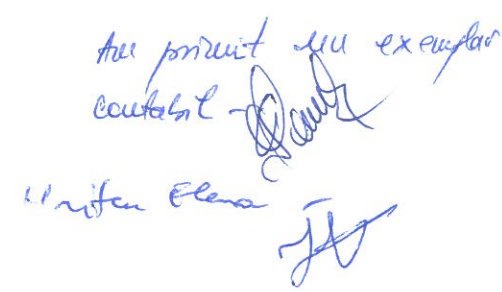 Am primit un exemplar
contabil -
Elena -